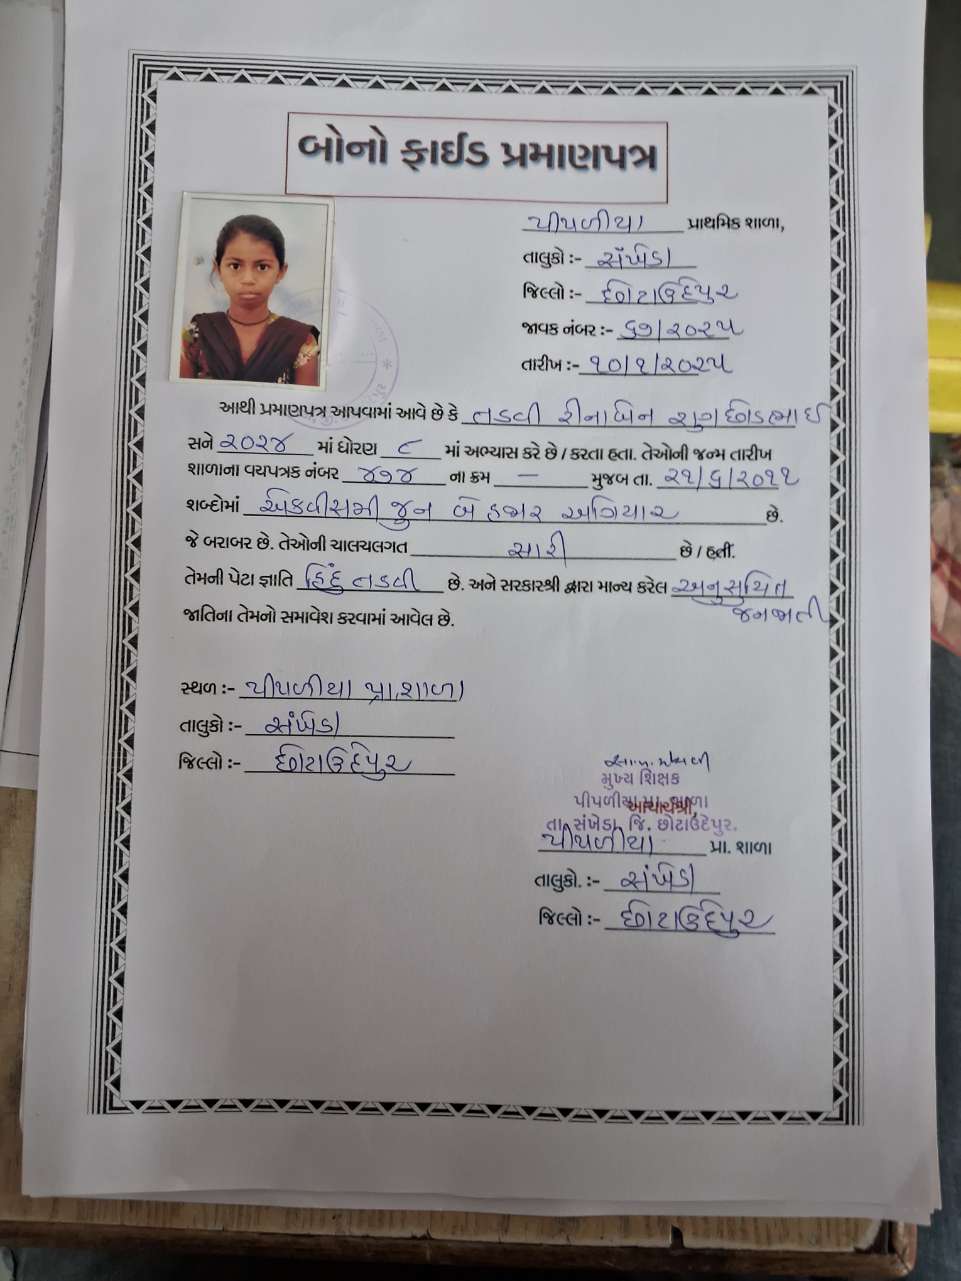 બોનો ફાઈડ પ્રમાણપત્ર
પીપળીયા પ્રાથમિક શાળા,
તાલુકો :- સંખેડા
જિલ્લો :- છોટાઉદેપુર
જાવક નંબર :- ૬૭/૨૦૨૫
તારીખ :- ૧૦/૧/૨૦૨૫
આથી પ્રમાણપત્ર આપવામાં આવે છે કે તડવી રીનાબેન રણછોડભાઈ
સને ૨૦૨૪ માં ધોરણ ૮ માં અભ્યાસ કરે છે / કરતા હતા. તેઓની જન્મ તારીખ
શાળાના વયપત્રક નંબર ૪૭૪ ના ક્રમ — મુજબ તા. ૨૧/૬/૨૦૧૧
શબ્દોમાં એકવીસમી જુન બે હજાર અગિયાર છે.
જે બરાબર છે. તેઓની ચાલચલગત સારી છે / હતી.
તેમની પેટા જ્ઞાતિ હિંદુ તડવી છે. અને સરકારશ્રી દ્વારા માન્ય કરેલ અનુસુચિત
જનજાતી
જાતિના તેમનો સમાવેશ કરવામાં આવેલ છે.
સ્થળ :- પીપળીયા પ્રા.શાળા
તાલુકો :- સંખેડા
જિલ્લો :- છોટાઉદેપુર
મુખ્ય શિક્ષક
પીપળીયા પ્રા. શાળા
આચાર્યશ્રી,
તા. સંખેડા, જિ. છોટાઉદેપુર.
પીપળીયા પ્રા. શાળા
તાલુકો. :- સંખેડા
જિલ્લો :- છોટાઉદેપુર